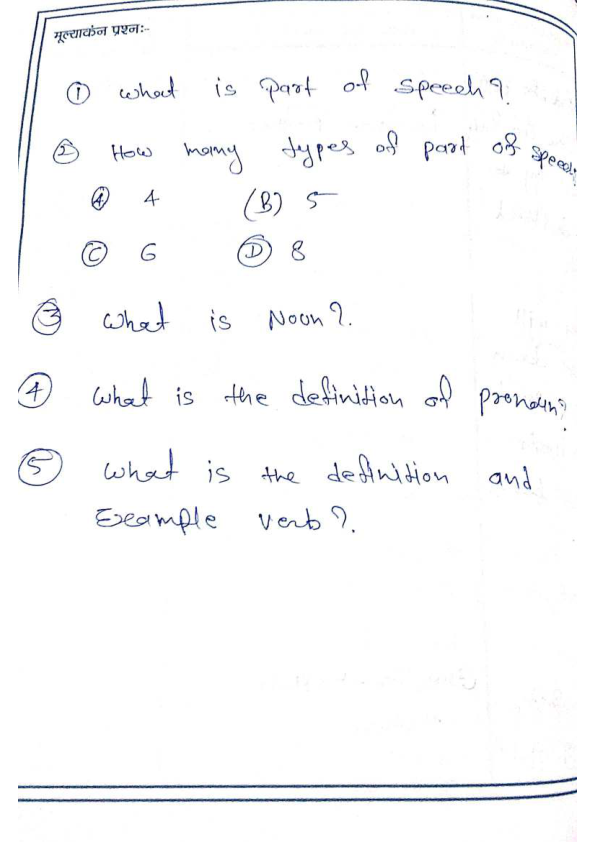 मूल्याकंन प्रश्न:-
① what is Part of Speech?.
② How many types of part of speech.
Ⓐ 4 (B) 5
Ⓒ 6 Ⓓ 8
③ What is Noun?.
④ What is the definition of pronoun?
⑤ What is the definition and
Example verb?.